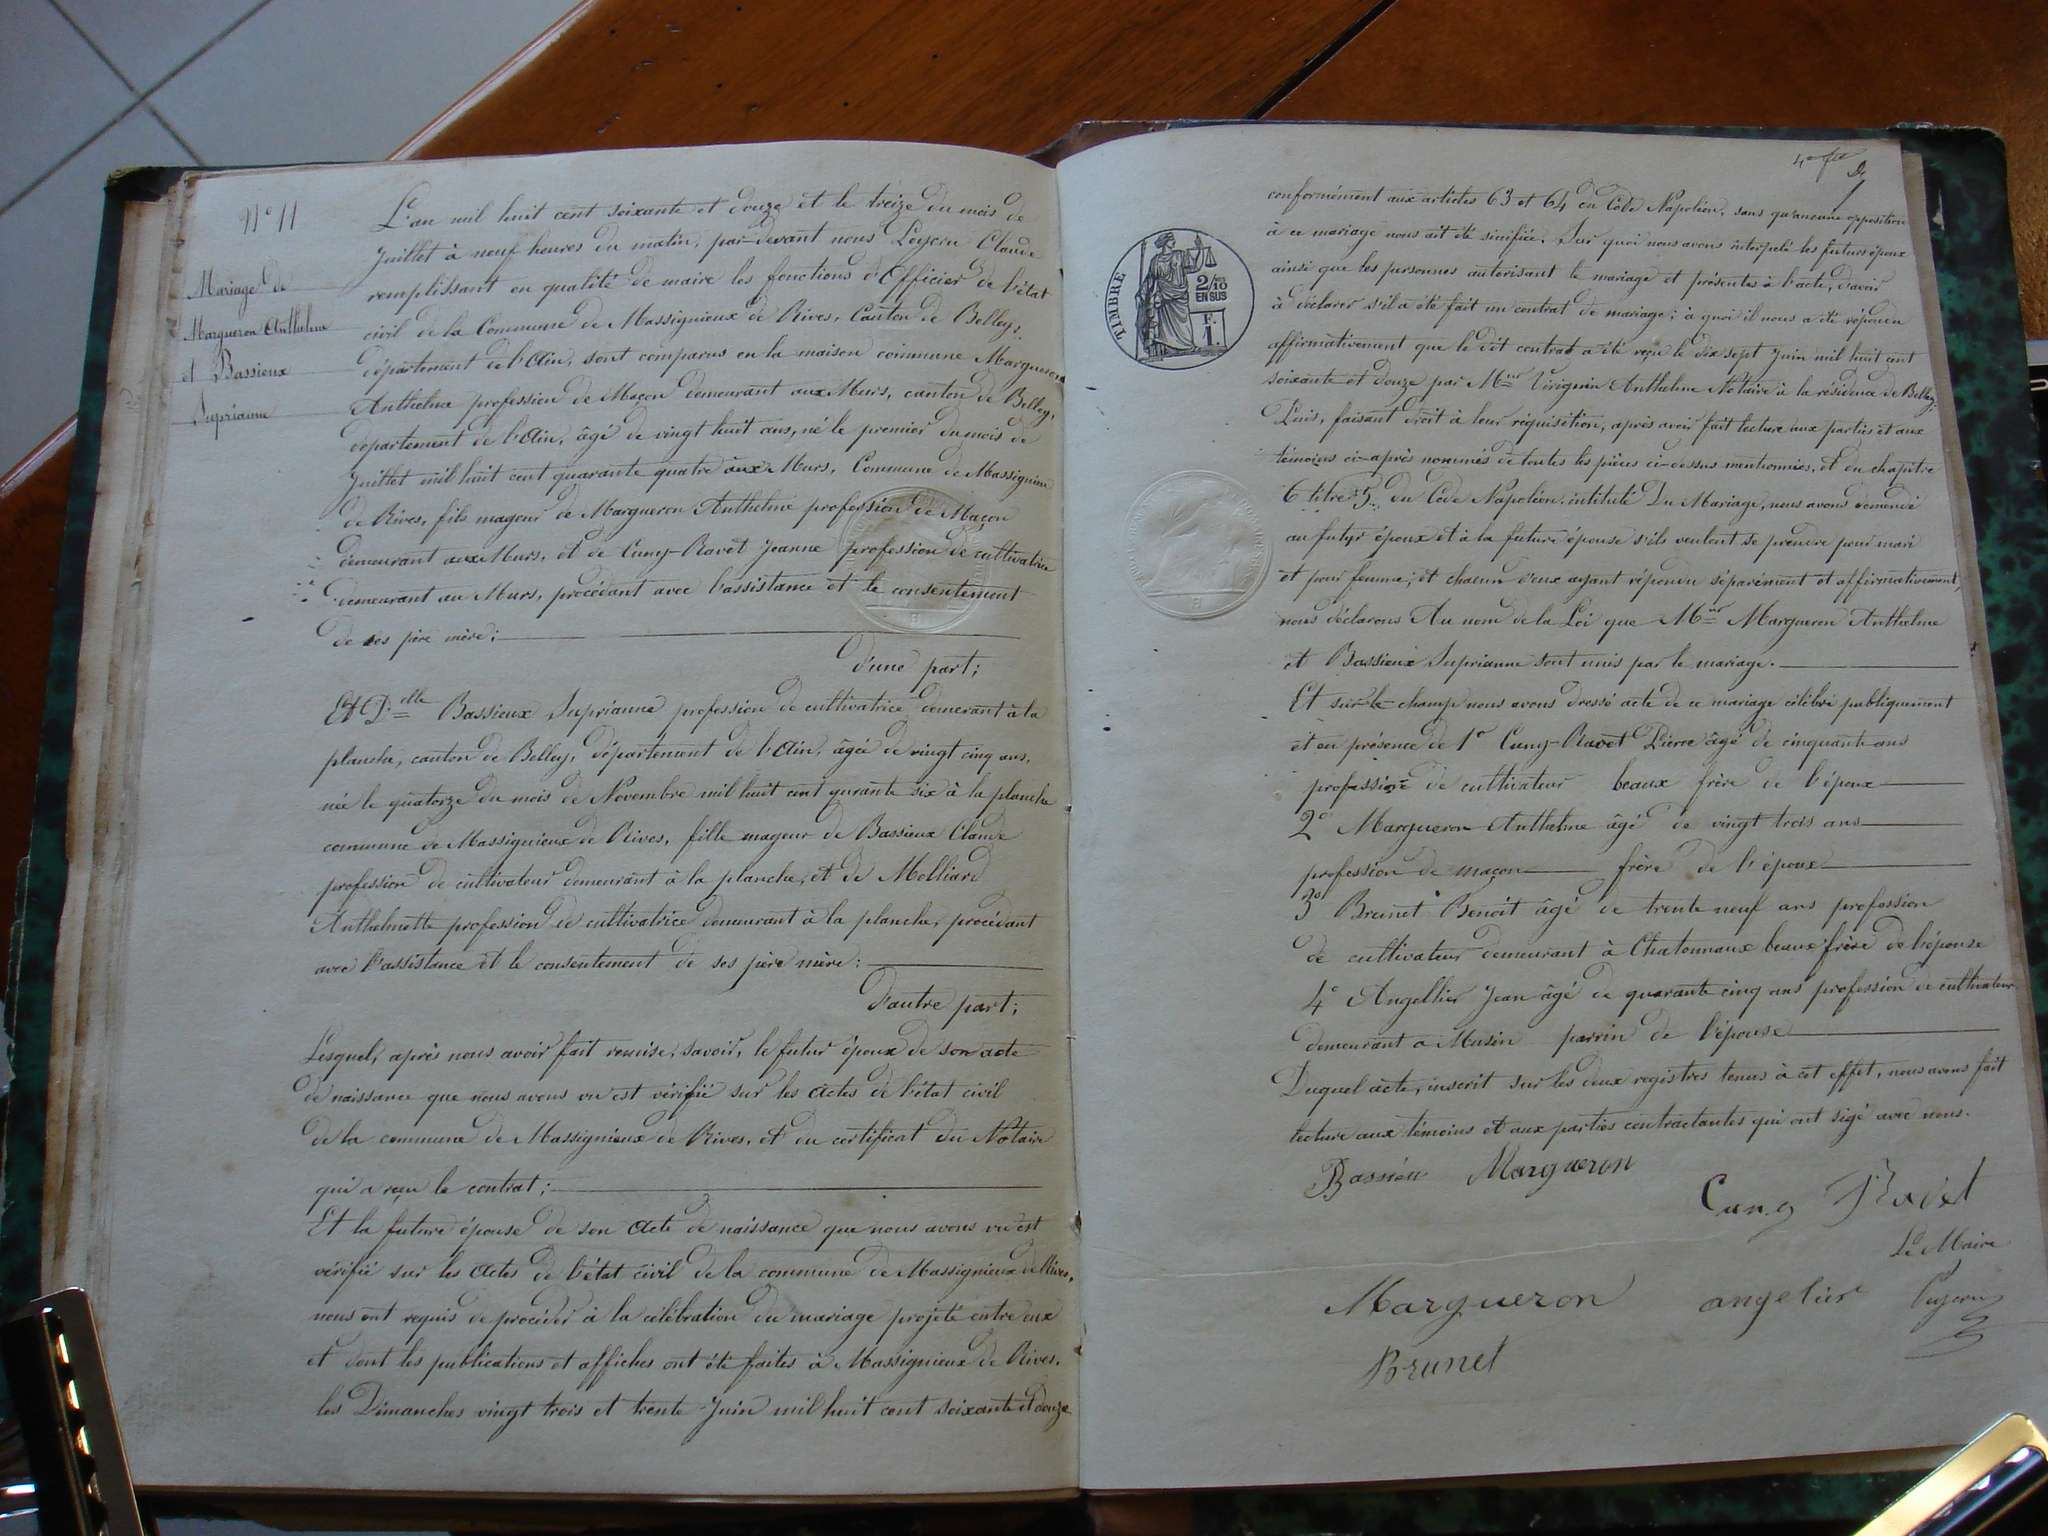 N° 11
Mariage de
Margueron Anthelme
et Bassieux
Suprianne
L'an mil huit cent soixante et douze et le treize du mois de
Juillet à neuf heures du matin, par-devant nous Claude
remplissant en qualité de maire les fonctions d'Officier de l'état
civil de la Commune de Massignieux de Rives, Canton de Belley,
département de l'Ain, sont comparus en la maison commune Margueron
Anthelme profession de Maçon demeurant aux Murs, canton de Belley,
département de l'Ain, âgé de vingt huit ans, né le premier du mois de
Juillet mil huit cent quarante quatre aux Murs, Commune de Massignieu
de Rives, fils mageur de Margueron Anthelme profession de Maçon
demeurant aux Murs, et de Cuny-Ravet Jeanne profession de cultivatrice
demeurant au Murs, procédant avec l'assistance et le consentement
de ses père mère;
d'une part;
Et D.elle Bassieux Suprianne profession de cultivatrice demerant à la
planche, canton de Belley, département de l'Ain, âgée de vingt cinq ans,
née le quatorze du mois de Novembre mil huit cent qurante six à la planche
commune de Massignieux de Rives, fille mageur de Bassieux Claude
profession de cultivateur demeurant à la planche, et de Molliard
Anthelmette profession de cultivatrice demeurant à la planche, procédant
avec l'assistance et le consentement de ses père mère:
d'autre part;
Lesquel, après nous avoir fait remise, savoir, le futur époux de son acte
de naissance que nous avons vu est vérifié sur les actes de l'état civil
de la commune de Massignieux de Rives, et du certificat du Notaire
qui a reçu le contrat;
Et la future épouse de son acte de naissance que nous avons vu est
vérifié sur les actes de l'état civil de la commune de Massignieux de Rives,
nous ont requis de procéder à la célébration du mariage projeté entre eux
et dont les publications et affiches ont été faites à Massignieux de Rives,
les Dimanches vingt trois et trente Juin mil huit cent soixante et douze
4e
TIMBRE
2/10
EN SUS
F.
1.
conformément aux articles 63 et 64 du Code Napoléon, sans qu'aucune opposition
à ce mariage nous ait été sinifiée. Sur quoi nous avons interpelé les futurs époux
ainsi que les personnes autorisant le mariage et présentes à l'acte, d'avoir
à déclarer s'il a été fait un contrat de mariage; à quoi il nous a été répondu
affirmativement que le dit contrat a été reçu le dix sept Juin mil huit cent
soixante et douze par Mr Virignin Anthelme Notaire à la résidence de Belley.
Puis, faisant droit à leur réquisition, après avoir fait lecture aux parties et aux
témoins ci-après nommés de toutes les pièces ci-dessus mentionnées, et du chapitre
6 titre 5. du Code Napoléon intitulé Du Mariage, nous avons demandé
au futur époux et à la future épouse s'ils veulent se prendre pour mari
et pour femme; et chacun d'eux ayant répondu séparément et affirmativement,
nous déclarons Au nom de la Loi que Mr Margueron Anthelme
et Bassieux Suprianne sont unis par le mariage.
Et sur-le-champ nous avons dressé acte de ce mariage célébré publiquement
et en présence de 1° Cuny-Ravet Pierre âgé de cinquante ans
profession de cultivateur beaux frère de l'époux
2° Margueron Anthelme âgé de vingt trois ans
profession de maçon frère de l'époux
3° Brunet Benoit âgé de trente neuf ans profession
de cultivateur demeurant à Chatonnaux beaux frère de l'épouse
4° Angellier Jean âgé de quarante cinq ans profession de cultivateur
demeurant a Musin parrin de l'épouse
Duquel acte, inscrit sur les deux registres tenus à cet effet, nous avons fait
lecture aux témoins et aux parties contractantes qui ont sigé avec nous.
Bassieu Margueron
Cuny Ravet
Le Maire
Margueron angelier
Brunet